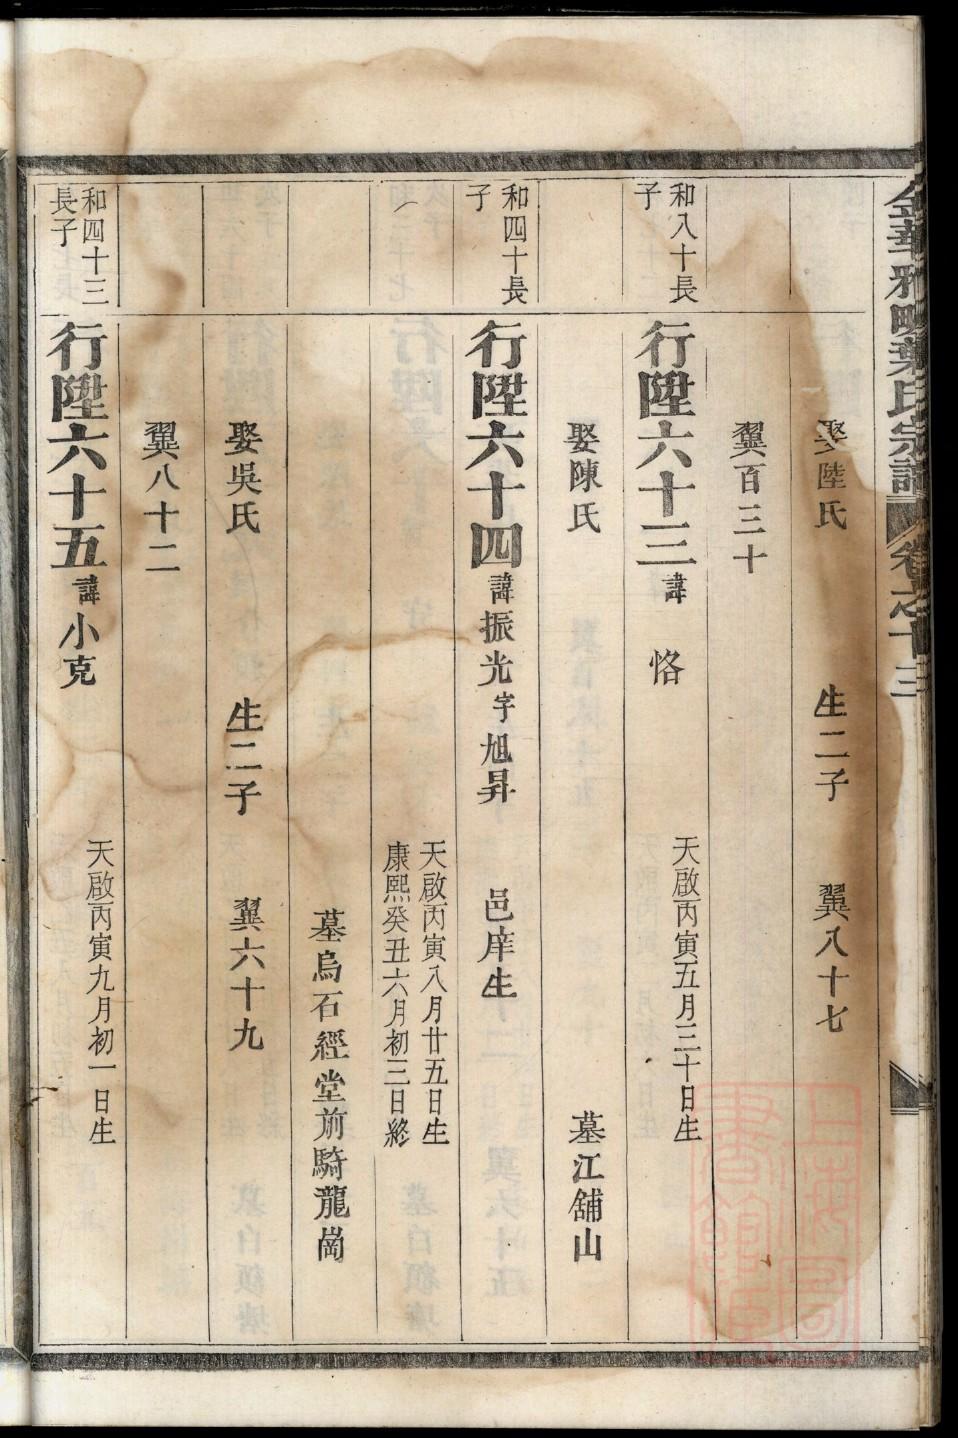 金華雅畈葉氏宗譜 卷之十三
娶陸氏 生二子 翼八十七
翼百三十
和八十長子 行陞六十三 諱 恪 天啟丙寅五月三十日生
娶陳氏 墓江舖山
和四十長子 行陞六十四 諱振光字旭昇 邑庠生
天啟丙寅八月廿五日生
康熙癸丑六月初三日終
墓烏石經堂前騎瀧崗
娶吳氏 生二子 翼六十九
翼八十二
和四十三長子 行陞六十五 諱小克 天啟丙寅九月初一日生